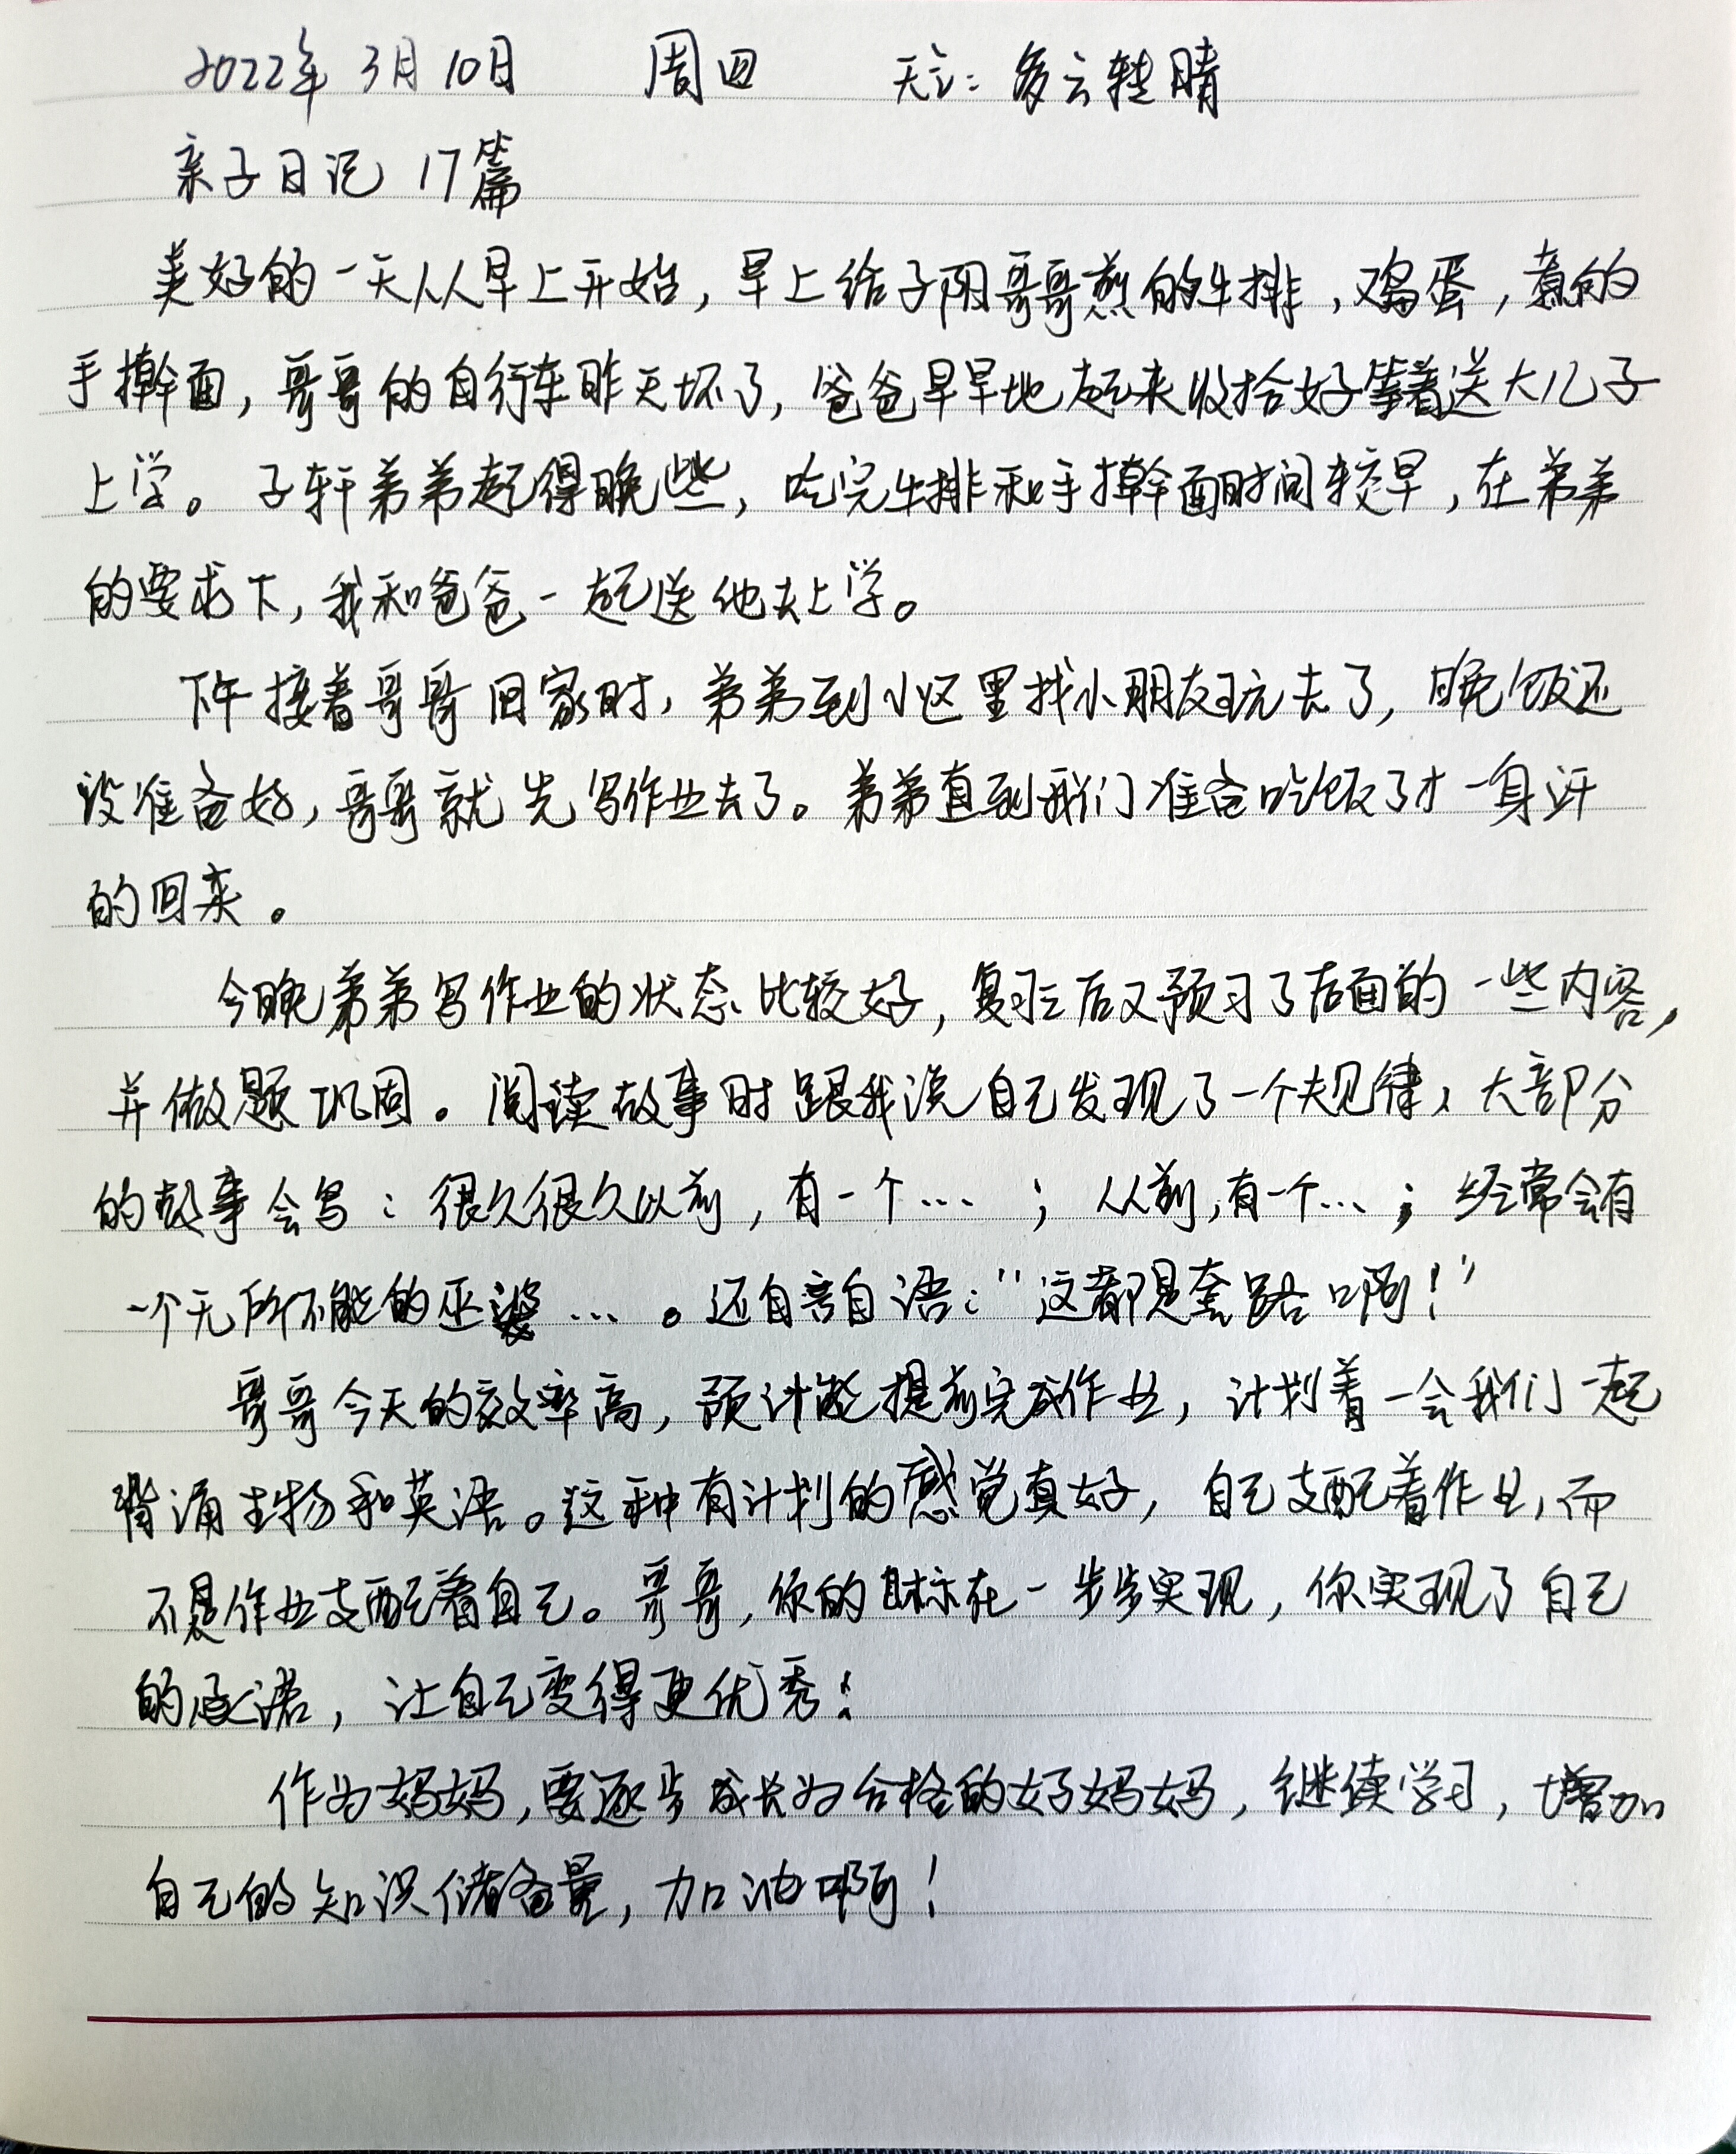 2022年 3月10日 周四 天气: 多云转晴
亲子日记 17篇
美好的一天从早上开始，早上给子阴哥哥煎的牛排，鸡蛋，煮的
手擀面，哥哥的自行车昨天坏了，爸爸早早地起来收拾好等着送大儿子
上学。子轩弟弟起得晚些，吃完牛排和手擀面时间较早，在弟弟
的要求下，我和爸爸一起送他去上学。
下午接着哥哥回家时，弟弟到小区里找小朋友玩去了，晚饭还
没准备好，哥哥就先写作业去了。弟弟直到我们准备吃饭了才一身汗
的回来。
今晚弟弟写作业的状态比较好，复习后又预习了后面的一些内容，
并做题巩固。阅读故事时跟我说自己发现了一个规律，大部分
的故事会写：很久很久以前，有一个…；从前，有一个…；经常会有
一个无所不能的巫婆…。还自言自语："这都是套路啊！"
哥哥今天的效率高，预计能提前完成作业，计划着一会我们一起
背诵生物和英语。这种有计划的感觉真好，自己支配着作业，而
不是作业支配着自己。哥哥，你的目标在一步步实现，你实现了自己
的承诺，让自己变得更优秀！
作为妈妈，要逐步成长为合格的好妈妈，继续学习，增加
自己的知识储备量，加油啊！